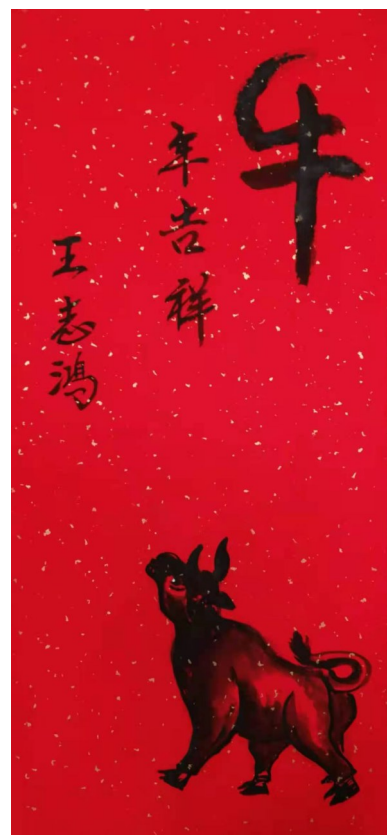 牛
年吉祥
王志鸿